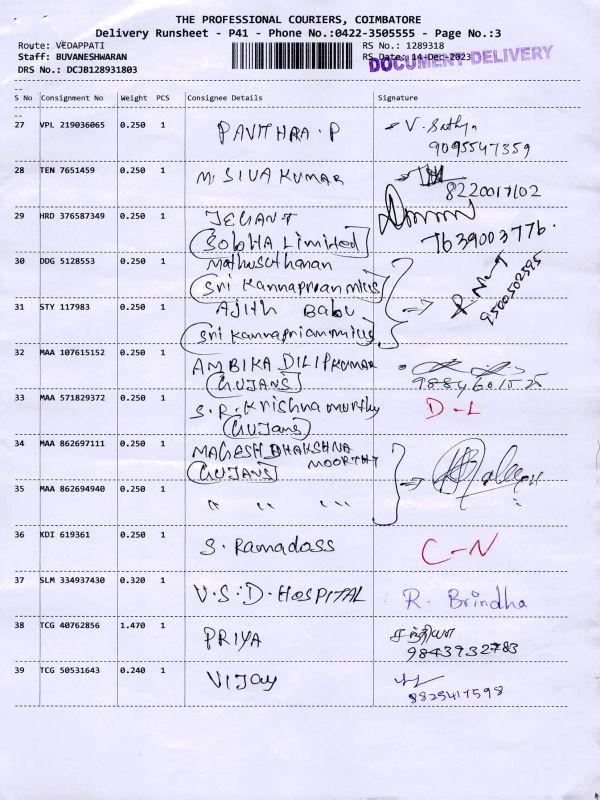 THE PROFESSIONAL COURIERS, COIMBATORE
Delivery Runsheet - P41 - Phone No.:0422-3505555 - Page No.:3
Route: VEDAPPATI RS No.: 1289318
Staff: BUVANESHWARAN RS Date: 14-Dec-2023
DOCUMENT DELIVERY
DRS No.: DCJB128931803
S No Consignment No Weight PCS Consignee Details Signature
27 VPL 219036065 0.250 1 PAVITHRA.P V. Sathya
9095547359
28 TEN 7651459 0.250 1 Mr SIVA KUMAR
8220017102
29 HRD 376587349 0.250 1 JEGANT
SOBHA Limited 7639003776.
30 DDG 5128553 0.250 1 Mathusuthanan
Sri Kannapiranmills
9500502595
31 STY 117983 0.250 1 AJITH Babu
Sri Kannapiranmills
32 MAA 107615152 0.250 1 AMBIKA DILIPKUMAR
(GUJANS)
33 MAA 571829372 0.250 1 S.R. Krishna murthy D-L
(GUJans)
34 MAA 862697111 0.250 1 MAGESH DHAKSHNA
MOORTHY
(GUJANS)
35 MAA 862694940 0.250 1 " " " "
36 KDI 619361 0.250 1 S. Ramadoss C-N
37 SLM 334937430 0.320 1 V.S.D. HOSPITAL R. Brindha
38 TCG 40762856 1.470 1 PRIYA சந்தியா
9843932783
39 TCG 50531643 0.240 1 VIJay
8825417598